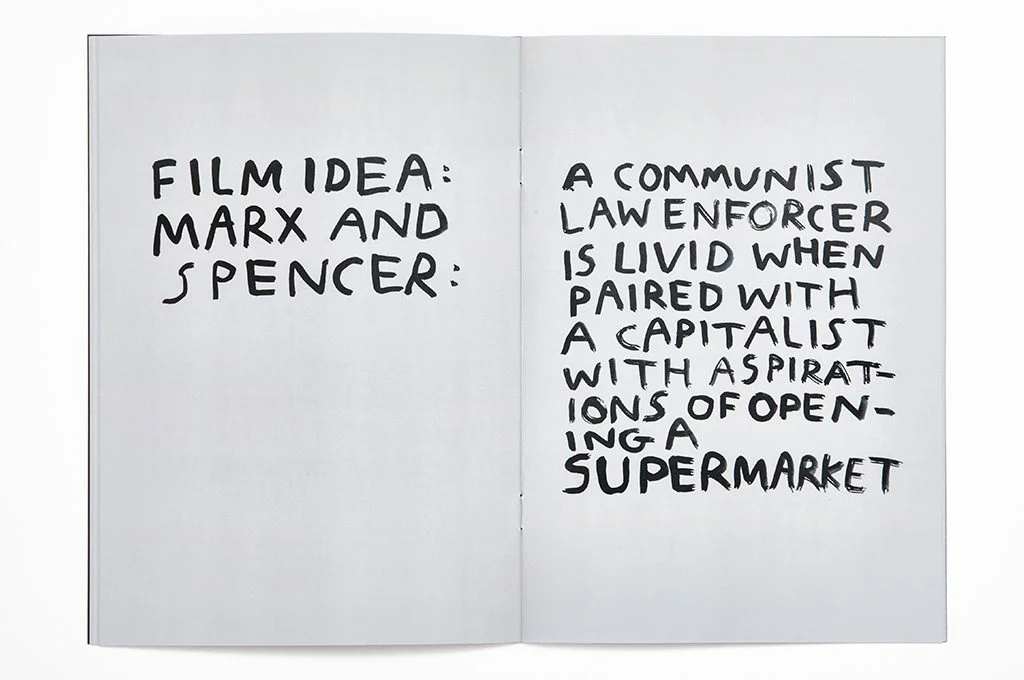 FILM IDEA:
MARX AND
SPENCER:
A COMMUNIST
LAW ENFORCER
IS LIVID WHEN
PAIRED WITH
A CAPITALIST
WITH ASPIRAT-
IONS OF OPEN-
ING A
SUPERMARKET